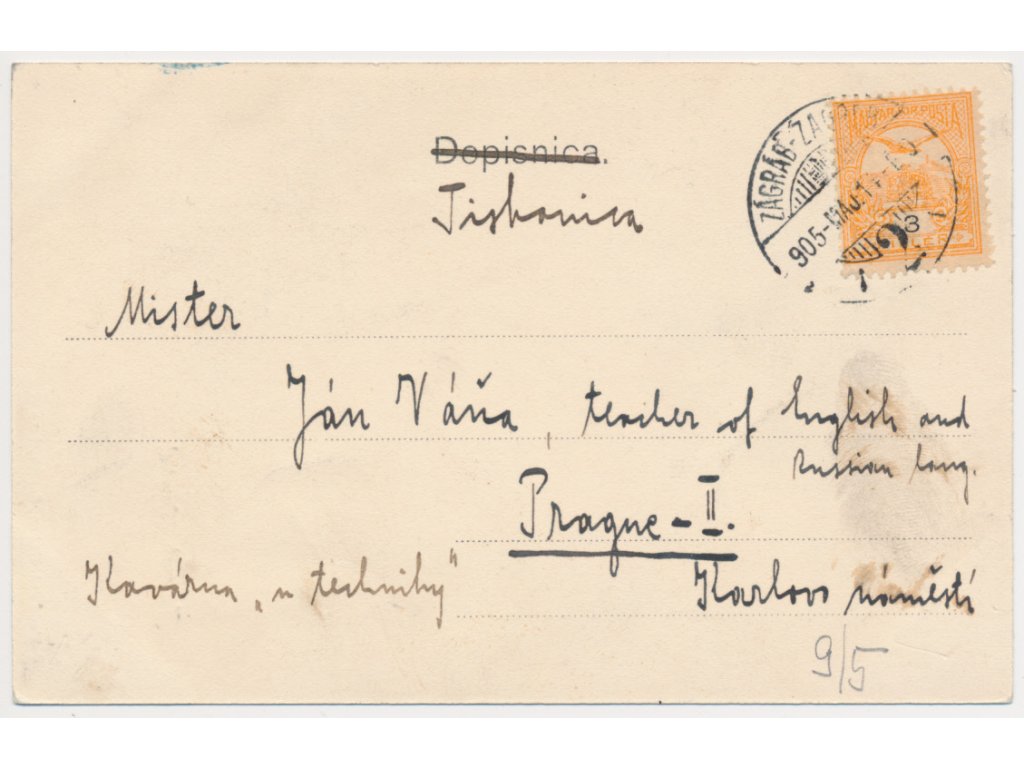 Dopisnica.
Tiskanica
MAGYAR KIR. POSTA
ZÁGRÁB-ZAGREB
905-MAJ.1
2
Mister
Ján Váňa, teacher of English and
russian lang.
Prague-II.
Kavárna „u techniky"
Karlovo náměstí
9/5